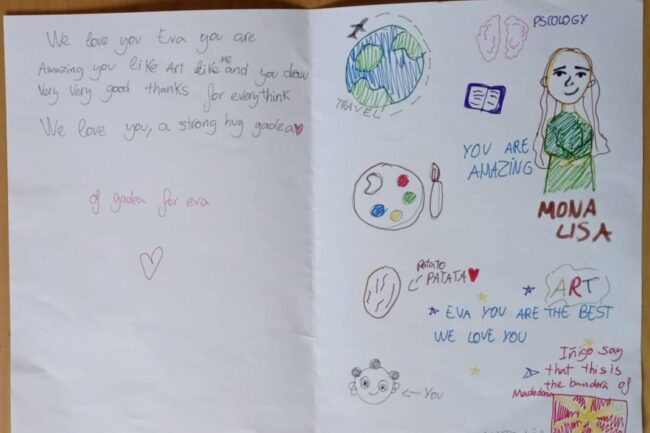 We love you Eva you are
Amazing you like Art like me and you draw
Very Very good thanks for everythink
We love you, a strong hug gadea
of gadea for eva
PSCOLOGY
TRAVEL
YOU ARE
AMAZING
MONA
LISA
potato
PATATA
ART
EVA YOU ARE THE BEST
WE LOVE YOU
YOU
Iñigo say
that this is
the bandera of
Madedonia